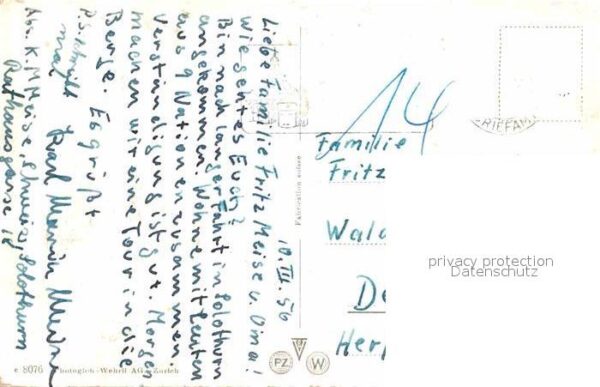 10. III. 56
Liebe Familie Fritz Meise u. Oma!
Wie geht es Euch?
Bin nach langer Fahrt in Solothurn
angekommen. Wohne mit Leuten
aus 9 Nationen zusammen.
Verständigung ist gut. Morgen
machen wir eine Tour in die
Berge. Es grüßt
Karl Martin Meise
P.S. schreibt
mal
Abs. K. M. Meise, Schweiz, Solothurn
Rathausgasse 18
14
Familie
Fritz
Wald
De
Her
RIFFA
Fabrication suisse
PZ
W
e 8076 Photoglob-Wehrli AG., Zürich
privacy protection
Datenschutz